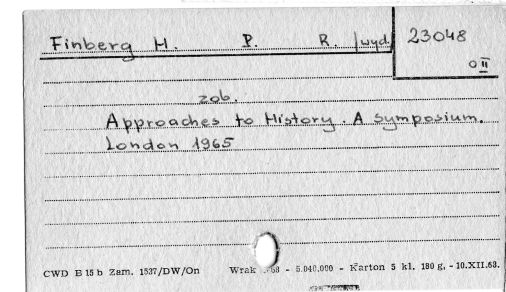 Finberg H. P. R. /wyd
23048
o II
zob.
Approaches to History. A symposium.
London 1965
CWD B 15 b Zam. 1537/DW/On Wrak 68 - 5.040.000 - Karton 5 kl. 180 g. - 10.XII.63.